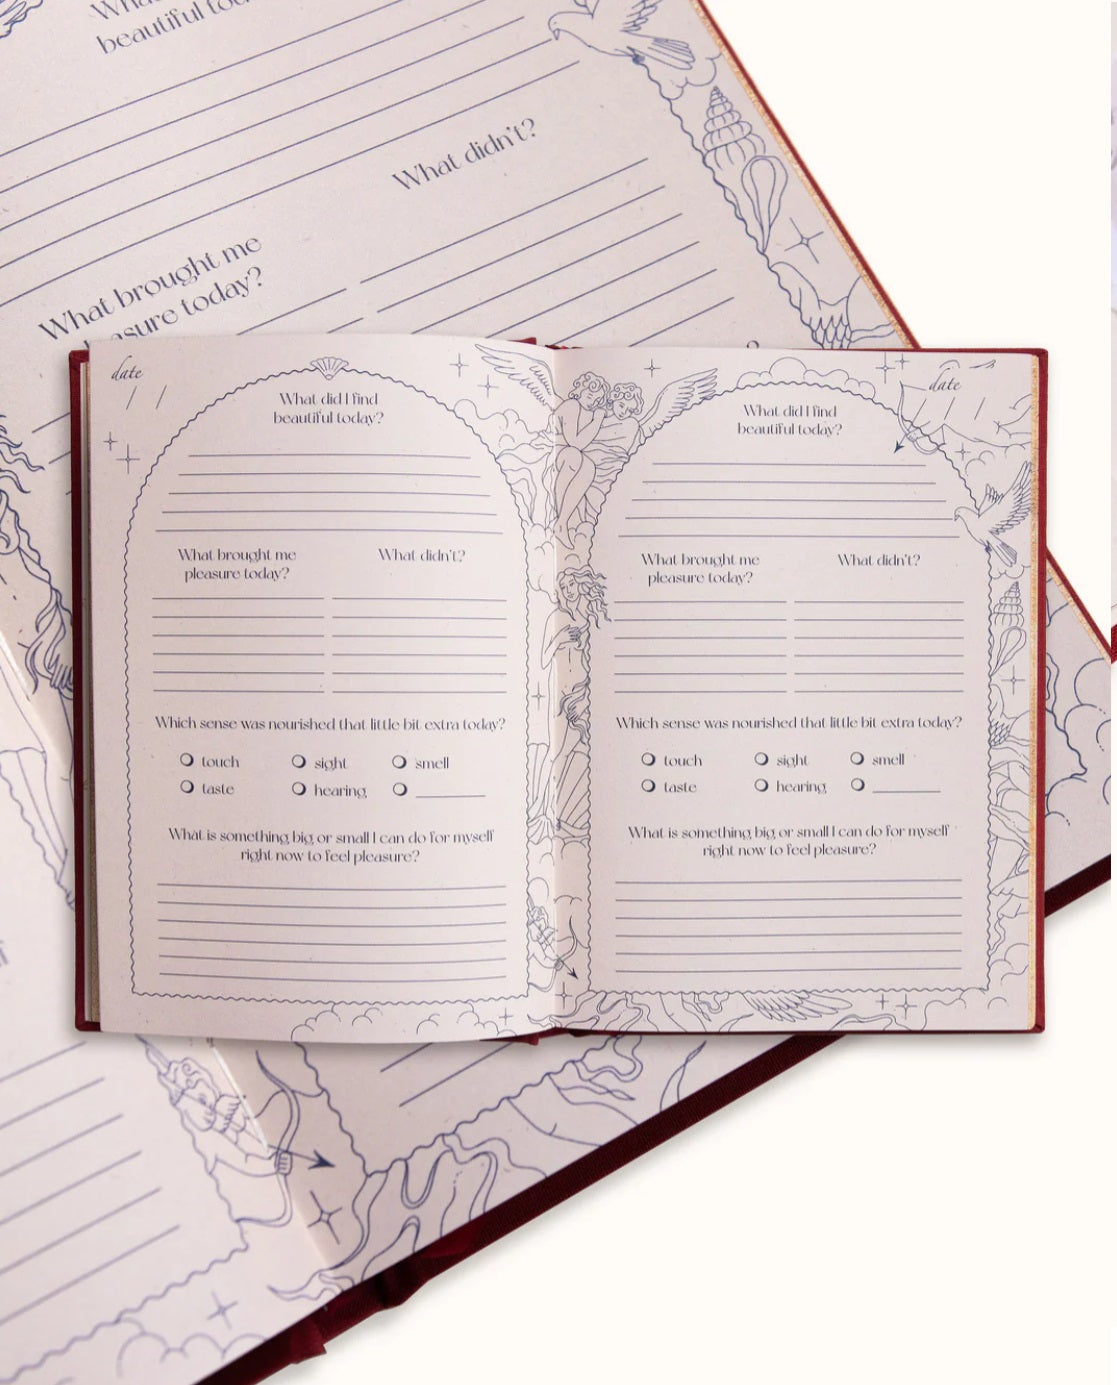 beautiful
What didn't?
What brought me
today?
date
/ /
What did I find
beautiful today?
What brought me
pleasure today?
What didn't?
Which sense was nourished that little bit extra today?
touch
sight
smell
taste
hearing
What is something big or small I can do for myself
right now to feel pleasure?
date
What did I find
beautiful today?
What brought me
pleasure today?
What didn't?
Which sense was nourished that little bit extra today?
touch
sight
smell
taste
hearing
What is something big or small I can do for myself
right now to feel pleasure?